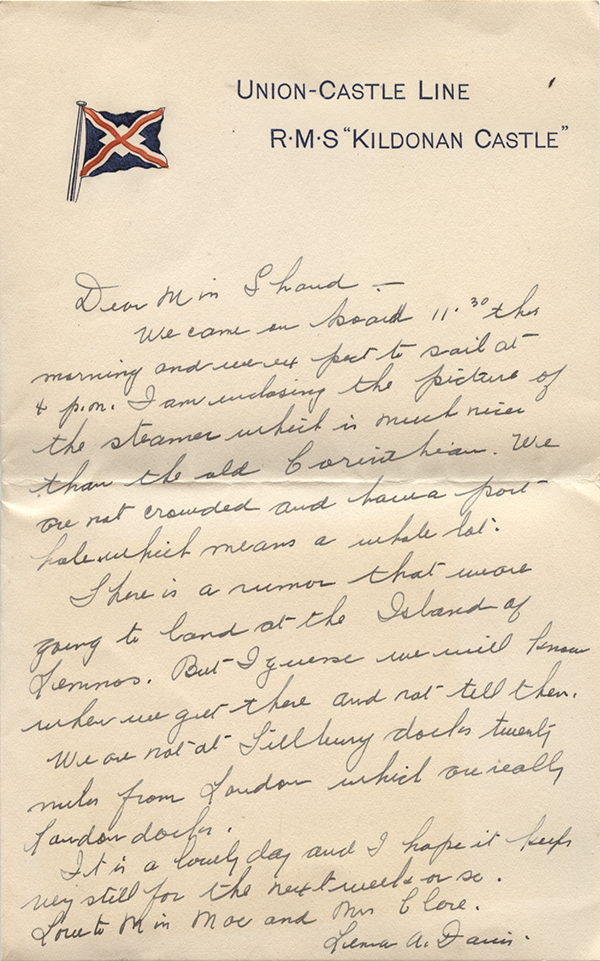 UNION-CASTLE LINE
R·M·S "KILDONAN CASTLE"
Dear Miss Shand —
We came on board 11.30 this
morning and we expect to sail at
4 p.m. I am enclosing the picture of
the steamer which is much nicer
than the old Corinthian. We
are not crowded and have a port
hole which means a whole lot.
There is a rumor that we are
going to land at the Island of
Lemnos. But I guess we will know
when we get there and not till then.
We are not at Tillbury docks twenty
miles from London which are really
London docks.
It is a lovely day and I hope it keeps
very still for the next week or so.
Love to Miss Mac and Mrs Clare.
A. Davis.